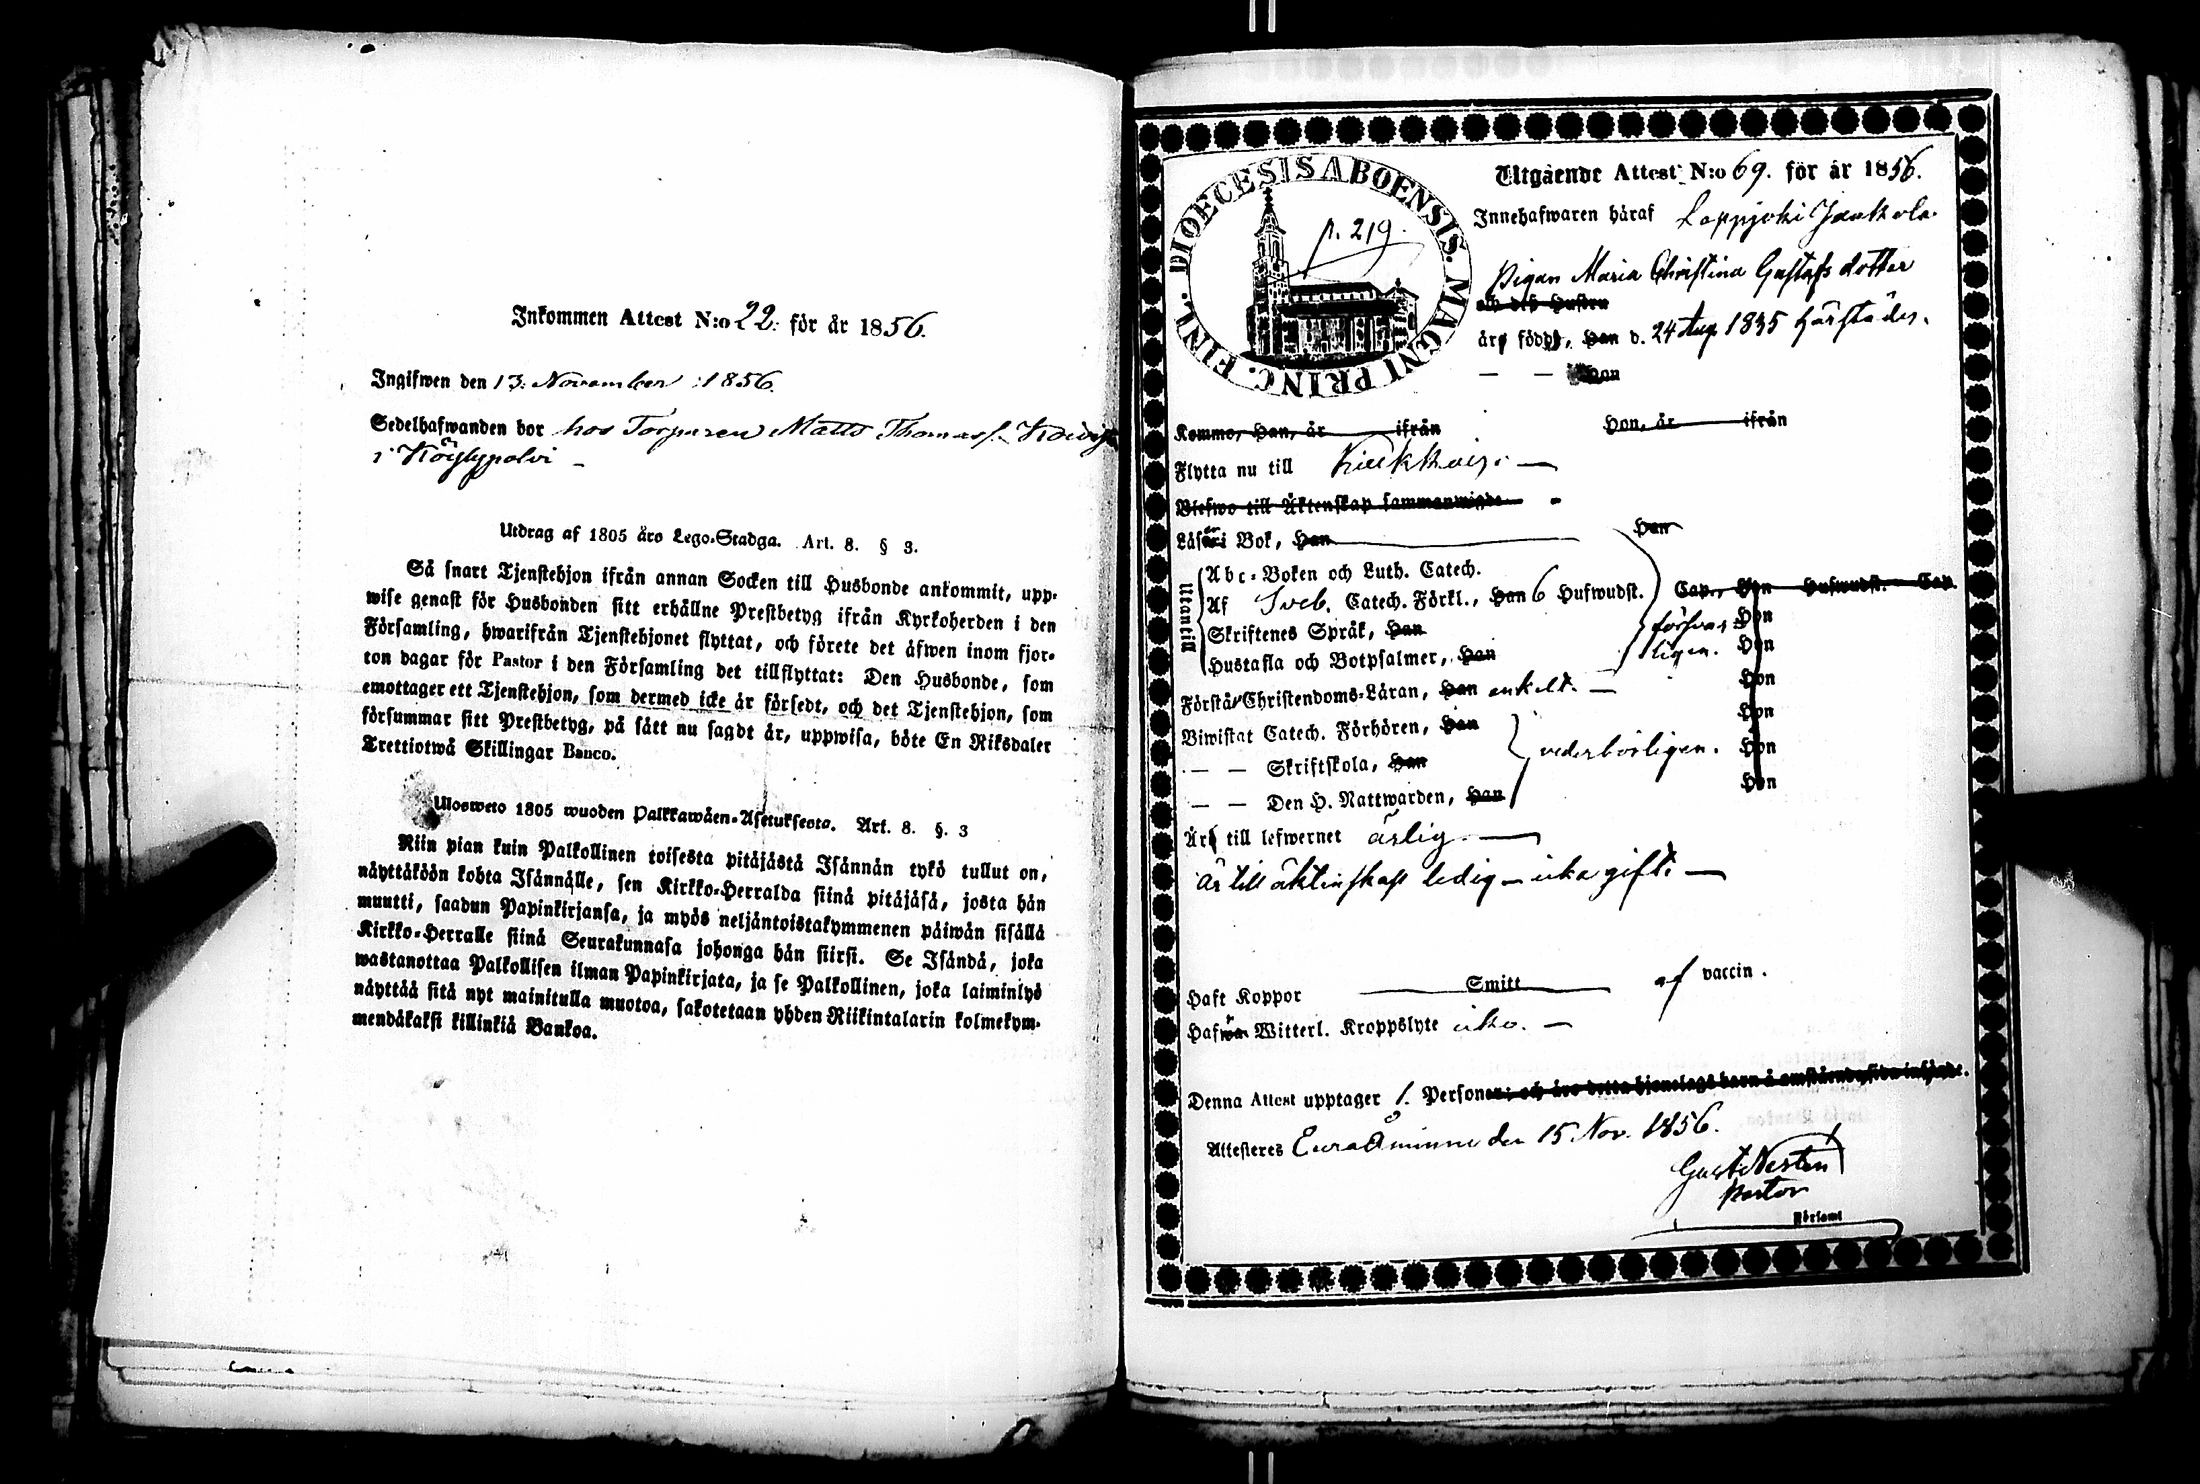 Inkommen Attest N:o 22. för år 1856.
Ingifwen den 13. November 1856.
Sedelhafwanden bor hos Torparen Matts Thomass.
i
Utdrag af 1805 års Lego-Stadga. Art. 8. § 3.
Så snart Tjenstehjon ifrån annan Socken till Husbonde ankommit, upp-
wise genast för Husbonden sitt erhållne Prestbetyg ifrån Kyrkoherden i den
Församling, hwarifrån Tjenstehjonet flyttat, och förete det äfwen inom fjor-
ton dagar för Pastor i den Församling det tillflyttat: Den Husbonde, som
emottager ett Tjenstehjon, som dermed icke är försedt, och det Tjenstehjon, som
försummar sitt Prestbetyg, på sätt nu sagdt är, uppwisa, böte En Riksdaler
Trettiotwå Skillingar Banco.
Ulosweto 1805 wuoden Palkkawäen-Asetuksesta. Art. 8. §. 3
Niin pian kuin Palkollinen toisesta pitäjästä Isännän tykö tullut on,
näyttäköön kohta Isännälle, sen Kirkko-Herralda siinä pitäjäsä, josta hän
muutti, saadun Papinkirjansa, ja myös neljäntoistakymmenen päiwän sisällä
Kirkko-Herralle siinä Seurakunnasa johonga hän siirsi. Se Isändä, joka
wastanottaa Palkollisen ilman Papinkirjata, ja se Palkollinen, joka laiminlyö
näyttää sitä nyt mainitulla muotoa, sakotetaan yhden Riikintalarin kolmekym-
mendäkaksi killinkiä Bankoa.
DIOECESIS ABOENSIS. MAGNI PRINC. FINL.
p. 219.
Utgående Attest N:o 69. för år 1856.
Innehafwaren häraf Lappjoki
Pigan Maria Christina Gustafsdotter
och dess Hustru
är född, Han d. 24 Aug. 1835 härstädes.
— — Hon
Kommo, Han, år ifrån Hon, år ifrån
Flytta nu till
Blefwo till Äktenskap sammanwigde
Läser i Bok, Han Hon
Utantill
Abc-Boken och Luth. Catech.
Af Sveb. Catech. Förkl., Han 6 Hufwudst. Cap., Hon Hufwudst. Cap.
Skriftenes Språk, Han försvarligen. Hon
Hustafla och Botpsalmer, Han Hon
Förstår Christendoms-Läran, Han enkelt. — Hon
Biwistat Catech. Förhören, Han Hon
— — Skriftskola, Han vederbörligen. Hon
— — Den H. Nattwarden, Han Hon
Är till lefwernet ärlig. —
Är till äktenskap ledig — icke gift. —
Haft Koppor Smitt af vaccin.
Hafwa Witterl. Kroppslyte icke. —
Denna Attest upptager 1. Personer; och äro detta hjonelags barn å omstående sida införde.
Attesteres Euraåminne den 15 Nov. 1856.
Gust Nestén
Pastor
Församl